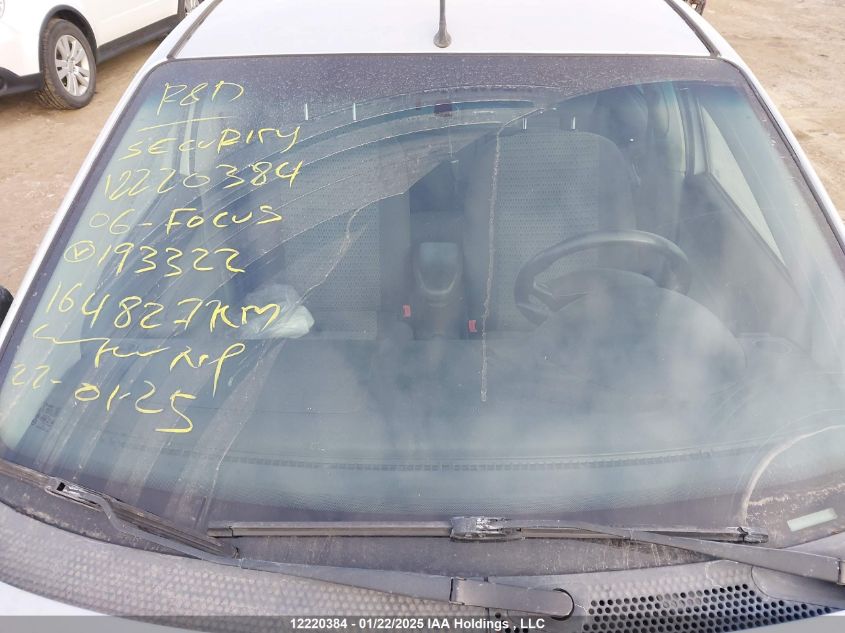 R&D
SECURITY
12220384
06-FOCUS
Ⓥ193322
164827KM
22-01-25
12220384 - 01/22/2025 IAA Holdings , LLC